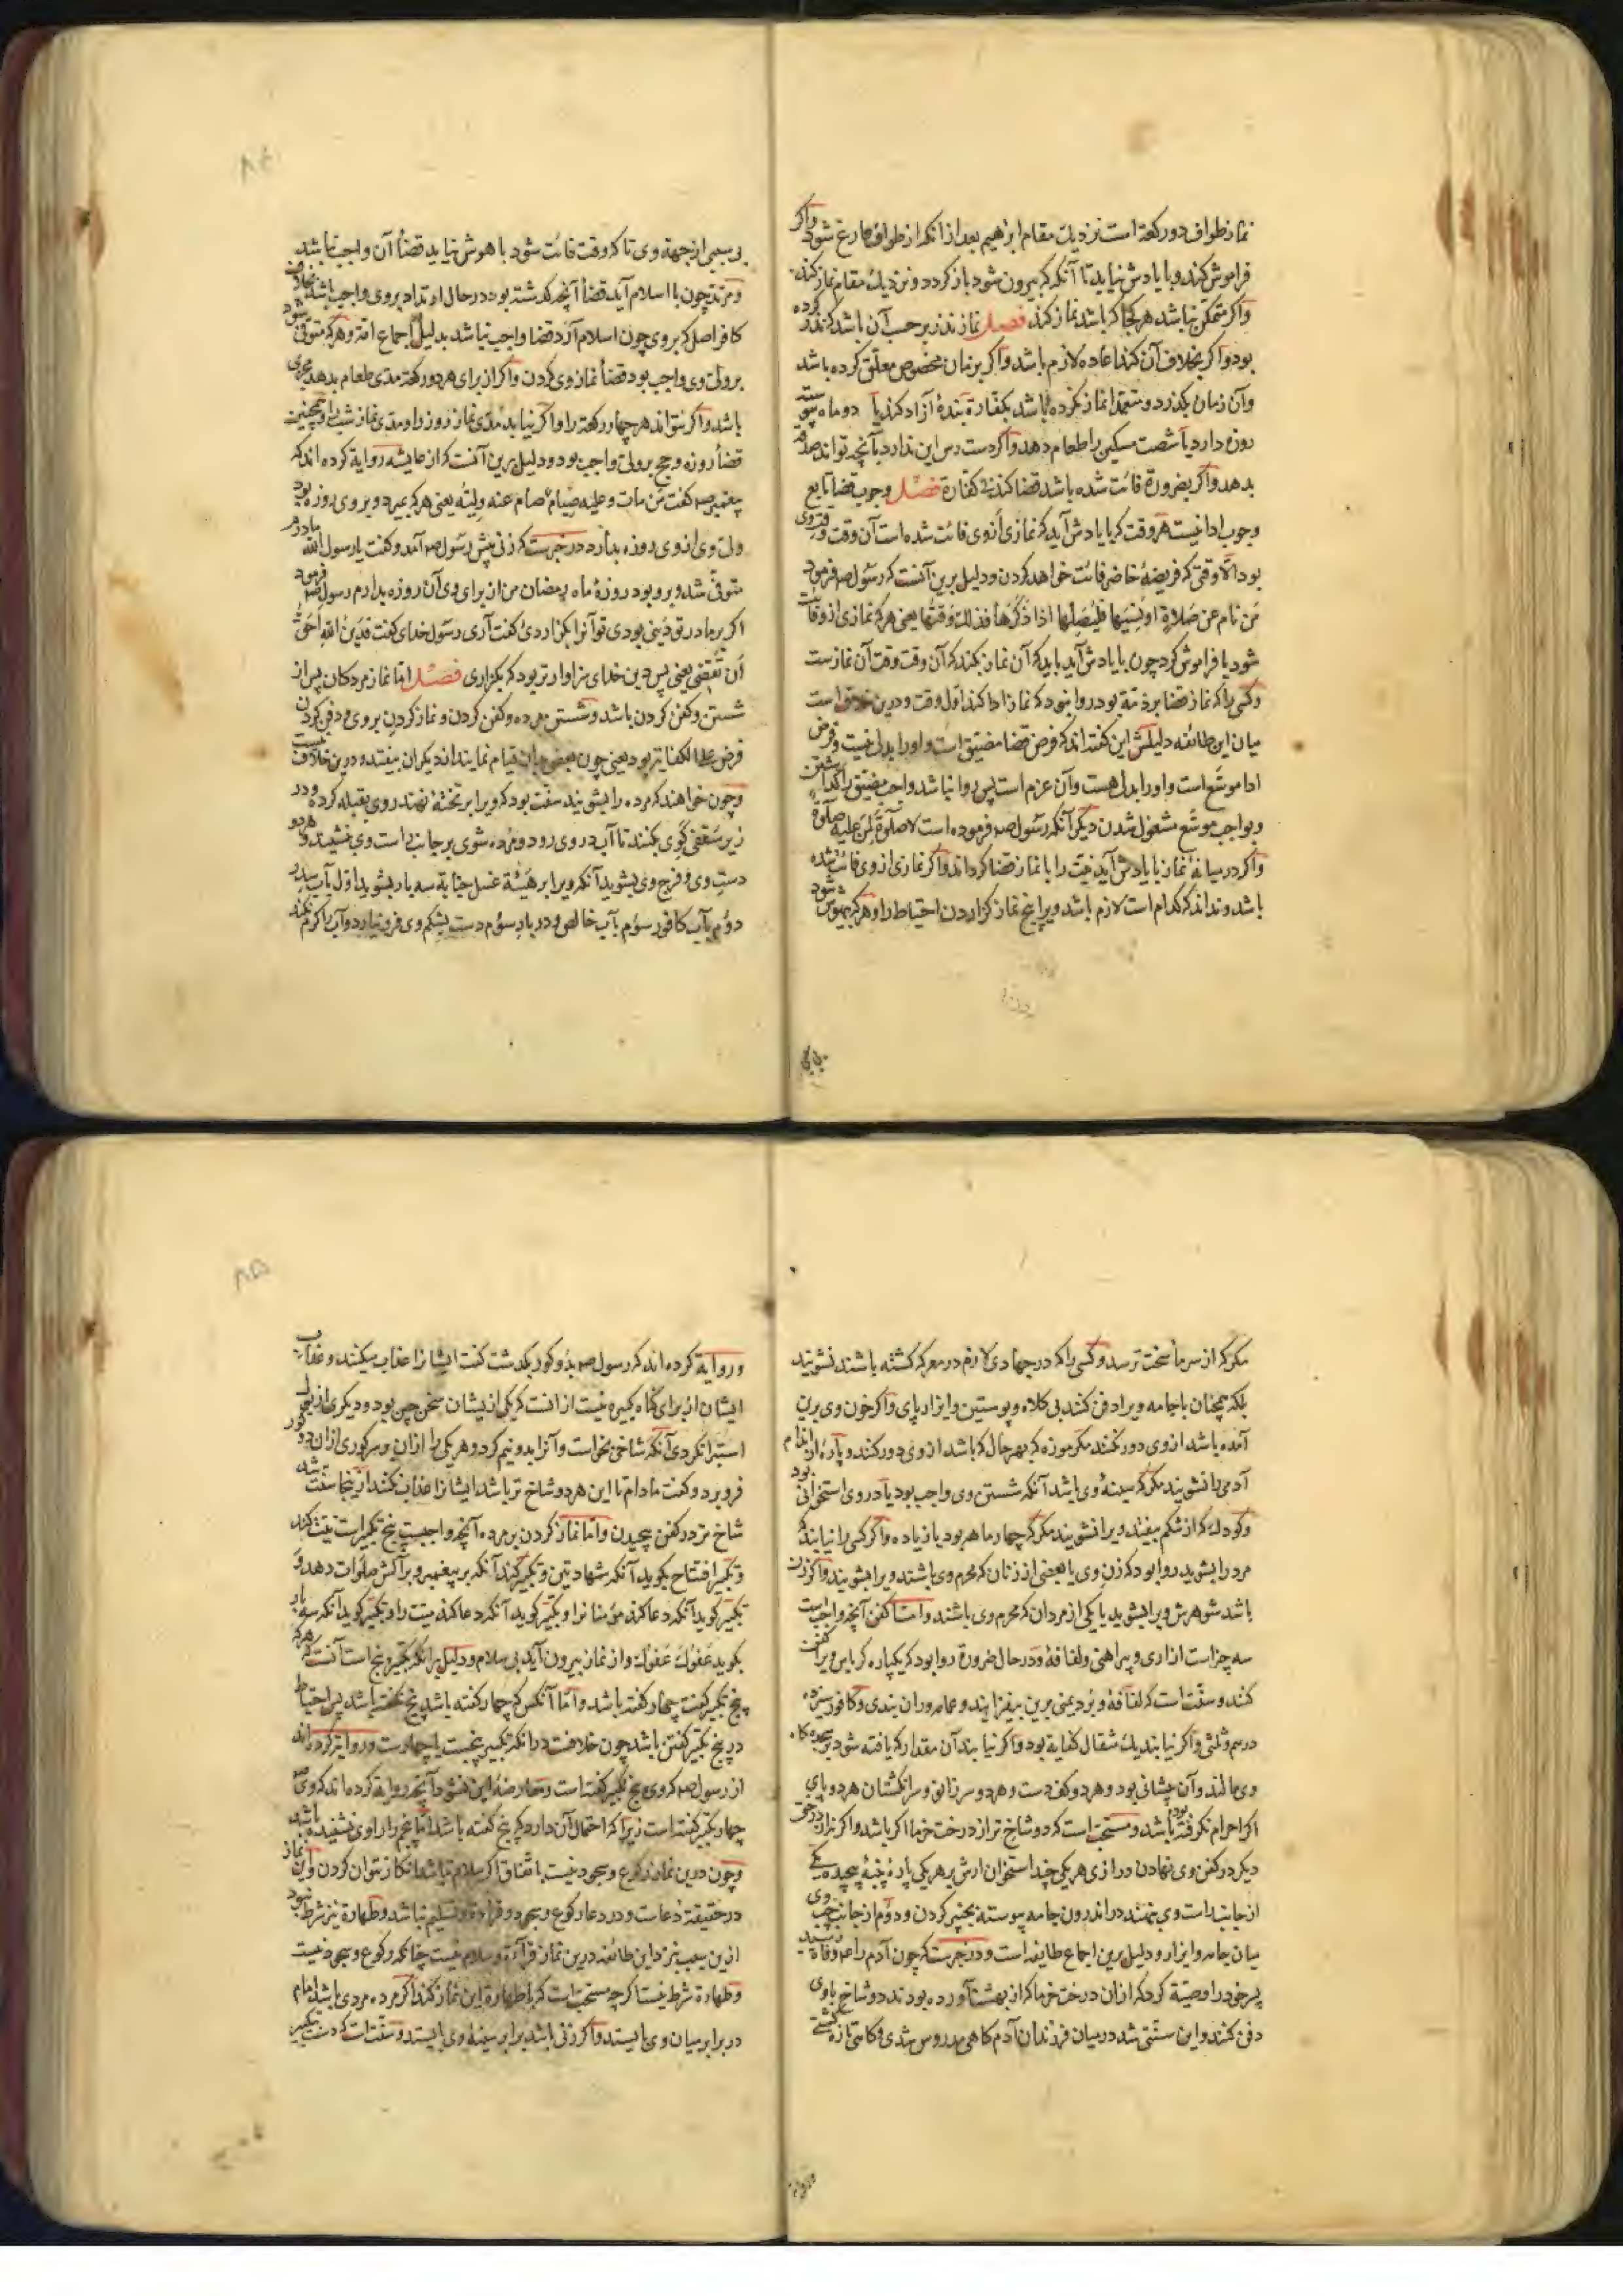 نماز طواف دو رکعة است نزدیك مقام ابرهیم بعد از آنکه از طواف فارغ شود واکر
فراموش کند وبا یادش نیاید تا آنکه که بیرون شود باز کردد ونزدیك مقام نماز کند
واکر متمکن نباشد هر کجا که باشد نماز کند فصل نماز نذر بر حسب آن باشد که نذر کرده
بود واکر بخلاف آن کند اعاده لازم باشد واکر بزمان مخصوص معلّق کرده باشد
وآن زمان بکذرد ومتعمدا نماز نکرده باشد بکفارة بندهٔ آزاد کند یا دو ماه پیوسته
روزه دارد یا شصت مسکین را طعام دهد واکر دست رس این ندارد بآنچه تواند صدقه
بدهد واکر بضرورة فائت شده باشد قضا کند بی کفارة فصل وجوب قضا تابع
وجوب ادا نیست هر وقت که با یادش آید که نمازی از وی فائت شده است آن وقت وقت وی
بود الّا وقتی که فریضهٔ حاضر فائت خواهد کردن ودلیل برین آنست که رسول صم فرمود
مَن نام عن صلاةٍ او نسیها فلیصلّها اذا ذکرها فذلك وقتها یعنی هر که نمازی ازو فائت
شود یا فراموش کرد چون با یادش آید باید که آن نماز بکند که آن وقت وقت آن نمازست
وکسی را که نماز قضا بر ذمّة بود روا نبود که نماز ادا کند اوّل وقت ودرین خلاف است
میان این طائفه دلیلش این کفته اند که فرض قضا مضیّق است واو را بدلی نیست وفرض
ادا موسّع است واو را بدل هست وآن عزم است پس روا نباشد واجب مضیّق را کذاشتن
وبواجب موسّع مشغول شدن دیکر آنکه رسول صم فرموده است لا صلوة لمن علیه صلوة
واکر در میانهٔ نماز با یادش آید نیت را با نماز قضا کرداند واکر نمازی از وی فائت شده
باشد ونداند که کدام است لازم باشد ویرا پنج نماز کزاردن احتیاط را وهر که بیهوش شود
نه بسببی از جهة وی تا که وقت فائت شود با هوش نیاید قضأ آن واجب نباشد
ومرتد چون با اسلام آید قضأ آنچه کذشته بود در حال ارتداد بروی واجب باشد بخلاف
کافر اصل که بروی چون اسلام آرد قضا واجب نباشد بدلیل اجماع امّة وهر که متوفّی شود
بر ولیّ وی واجب بود قضأ نماز وی کردن واکر از برای هر دو رکعة مدّی طعام بدهد مجزی
باشد واکر نتواند هر چهار رکعة را واکر نیابد مدّی نماز روز را ومدّی نماز شب را وهمچنین
قضأ روزه وحج بر ولیّ واجب بود ودلیل برین آنست که از عایشه روایة کرده اند که
پیغمبر صم کفت مَن مات وعلیه صیامٌ صام عنه ولیّه یعنی هر که بمیرد وبروی روزه بود
ولیّ وی از وی روزه بدارد ودر خبرست که زنی پیش رسول صم آمد وکفت یا رسول الله مادرم
متوفّی شد وبرو بود روزهٔ ماه رمضان من از برای وی آن روزه بدارم رسول صم فرمود
اکر بر مادرت دَینی بودی تو آنرا بکزاردی کفت آری رسول خدای کفت فدَین الله احقّ
اَن تُقضی یعنی پس دین خدای سزاوارتر بود که بکزاری فصل امّا نماز مردکان پس از
شستن وکفن کردن باشد وشستن مرده وکفن کردن ونماز کردن بروی ودفن کردن
فرض علی الکفایة بود یعنی چون بعضی بدان قیام نمایند از دیکران بیفتد ودرین خلاف نیست
وچون خواهند که مرده را بشویند سنّت بود که ویرا بر تختهٔ نهند روی بقبله کرده ودر
زیر سقفی کَوی بکنند تا آب در وی رود ومرده شوی بر جانب راست وی نشیند وهر دو
دستِ وی وفرج وی بشوید آنکه ویرا بر هیئة غسل جنابة سه بار بشوید اوّل بآب سدر
دوُم بآب کافور سوُم بآب خالص ودر بار سوُم دست بشکم وی فرو نیارد وآب را کرم نکند
مکر که از سرما سخت ترسد وکسی را که در جهادی لازم در معرکه کشته باشند نشویند
بلکه همچنان با جامه ویرا دفن کنند بی کلاه وپوستین وایزار پای واکر خون وی برین
آمده باشد از وی دور نکنند مکر موزه که بهر حال که باشد از وی دور کنند وپارهٔ از اندام
آدمی را نشویند مکر که سینهٔ وی باشد آنکه شستن وی واجب بود یا در وی استخوانی بود
وکودك که از شکم بیفتد ویرا نشویند مکر که چهار ماهه بود یا زیاده واکر کسی را نیابند که
مرد را بشوید روا بود که زنِ وی یا بعضی از زنان که محرم وی باشند ویرا بشویند واکر زن
باشد شوهرش ویرا بشوید یا یکی از مردان که محرم وی باشند وامّا کفن آنچه واجب است
سه چیز است ازاری وپیراهنی ولفافهٔ ودر حال ضرورة روا بود که بیکپاره کرباس ویرا کفن
کنند وسنّت است که لفافهٔ وبرد یمنی برین بیفزایند وعمامه وران بندی وکافور سیزده
درم وثلثی واکر نیابند یك مثقال کفایة بود واکر نیابند آن مقدار که یافته شود بر سجده کاه
وی مالند وآن پیشانی بود وهر دو کف دست وهر دو سر زانو وسر انکشتان هر دو پای
اکر احرام نکرفته بود باشد ومستحبّ است که دو شاخ تر از درخت خرما اکر باشد واکر نه از درختی
دیکر در کفن وی نهادن درازی هر یکی چند استخوان ارش بر هر یکی پارهٔ پنبهٔ پیچیده یکی
از جانب راست وی بنهند در اندرون جامه پیوسته بچنبر کردن ودوُم از جانب چپ وی
میان جامه وایزار ودلیل برین اجماع طایفه است ودر خبرست که چون آدم را عم وفاة رسید
پسر خود را وصیّة کرد که از ان درخت خرما که از بهشت آورده بودند دو شاخ با وی
دفن کنند واین سنّتی شد در میان فرزندان آدم کاهی مدروس شدی وکاهی تازه کشتی
وروایة کرده اند که رسول صم بدو کور بکذشت کفت ایشانرا عذاب میکنند وعذاب
ایشان از برای کناه کبیره نیست از انست که یکی از یشان سخن چین بود ودیکری از بول
استبرا نکردی آنکه شاخی بخواست وآنرا بدو نیم کرد وهر یکی را از ان بر سر کوری از ان دو کور
فرو برد وکفت مادام تا این هر دو شاخ تر باشد ایشانرا عذاب نکنند از ینجا سنّت شد
شاخ تر در کفن پیچیدن وامّا نماز کردن بر مرده آنچه واجبست پنج تکبیر است نیّت کند
وتکبیر افتتاح بکوید آنکه شهادتین وتکبیر کند آنکه بر پیغمبر وبر آلش صلوات دهد و
تکبیر کوید آنکه دعا کند مؤمنانرا وتکبیر کوید آنکه دعا کند میّت را وتکبیر کوید آنکه سه بار
بکوید عفوك عفوك واز نماز بیرون آید بی سلام ودلیل بر آنکه تکبیر پنج است آنست که هر که
پنج تکبیر کفت چهار کفته باشد وامّا آنکس که چهار کفته باشد پنج نکفت باشد پس احتیاط
در پنج تکبیر کفتن باشد چون خلافست در آنکه تکبیر پنجست یا چهارست وروایة کرده اند
از رسول صم که وی پنج تکبیر کفت است ومعارضهٔ این نشود آنچه روایة کرده اند که وی صم
چهار تکبیر کفته است زیرا که احتمال آن دارد که پنج کفته باشد امّا پنجم را راوی نشنیده باشد
وچون درین نماز رکوع وسجود نیست باتّفاق اکر سلام نباشد انکار نتوان کردن واین نماز
در حقیقة دعاست ودر دعا رکوع وسجود وقراءة وتسلیم نباشد وطهارة نیز شرط نبود
ازین سبب بنزد این طائفه درین نماز قراءة وسلام نیست چنانکه رکوع وسجود نیست
وطهارة شرط نیست اکر چه مستحبّ است که با طهارة این نماز کند اکر مرده مردی باشد امام
در برابر میان وی بایستد واکر زنی باشد برابر سینهٔ وی بایستد وسنّت است که دست بتکبیر